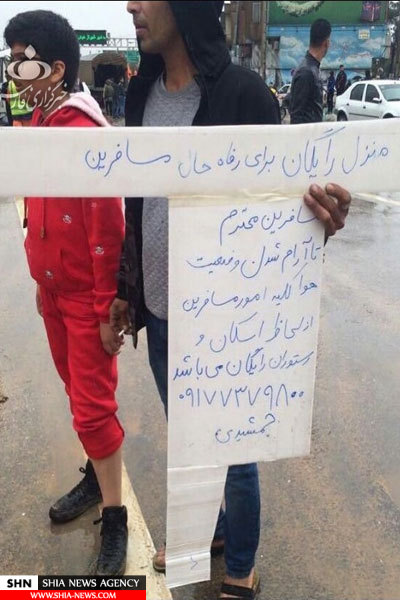 خبرگزاری فارس
منزل رایگان برای رفاه حال مسافرین
مسافرین محترم
تا آرام شدن وضعیت
هوا کلیه امور مسافرین
از لحاظ اسکان و
رستوران رایگان می باشد
۰۹۱۷۷۳۷۹۸۰۰
جمشیدی
SHN
SHIA NEWS AGENCY
WWW.SHIA-NEWS.COM